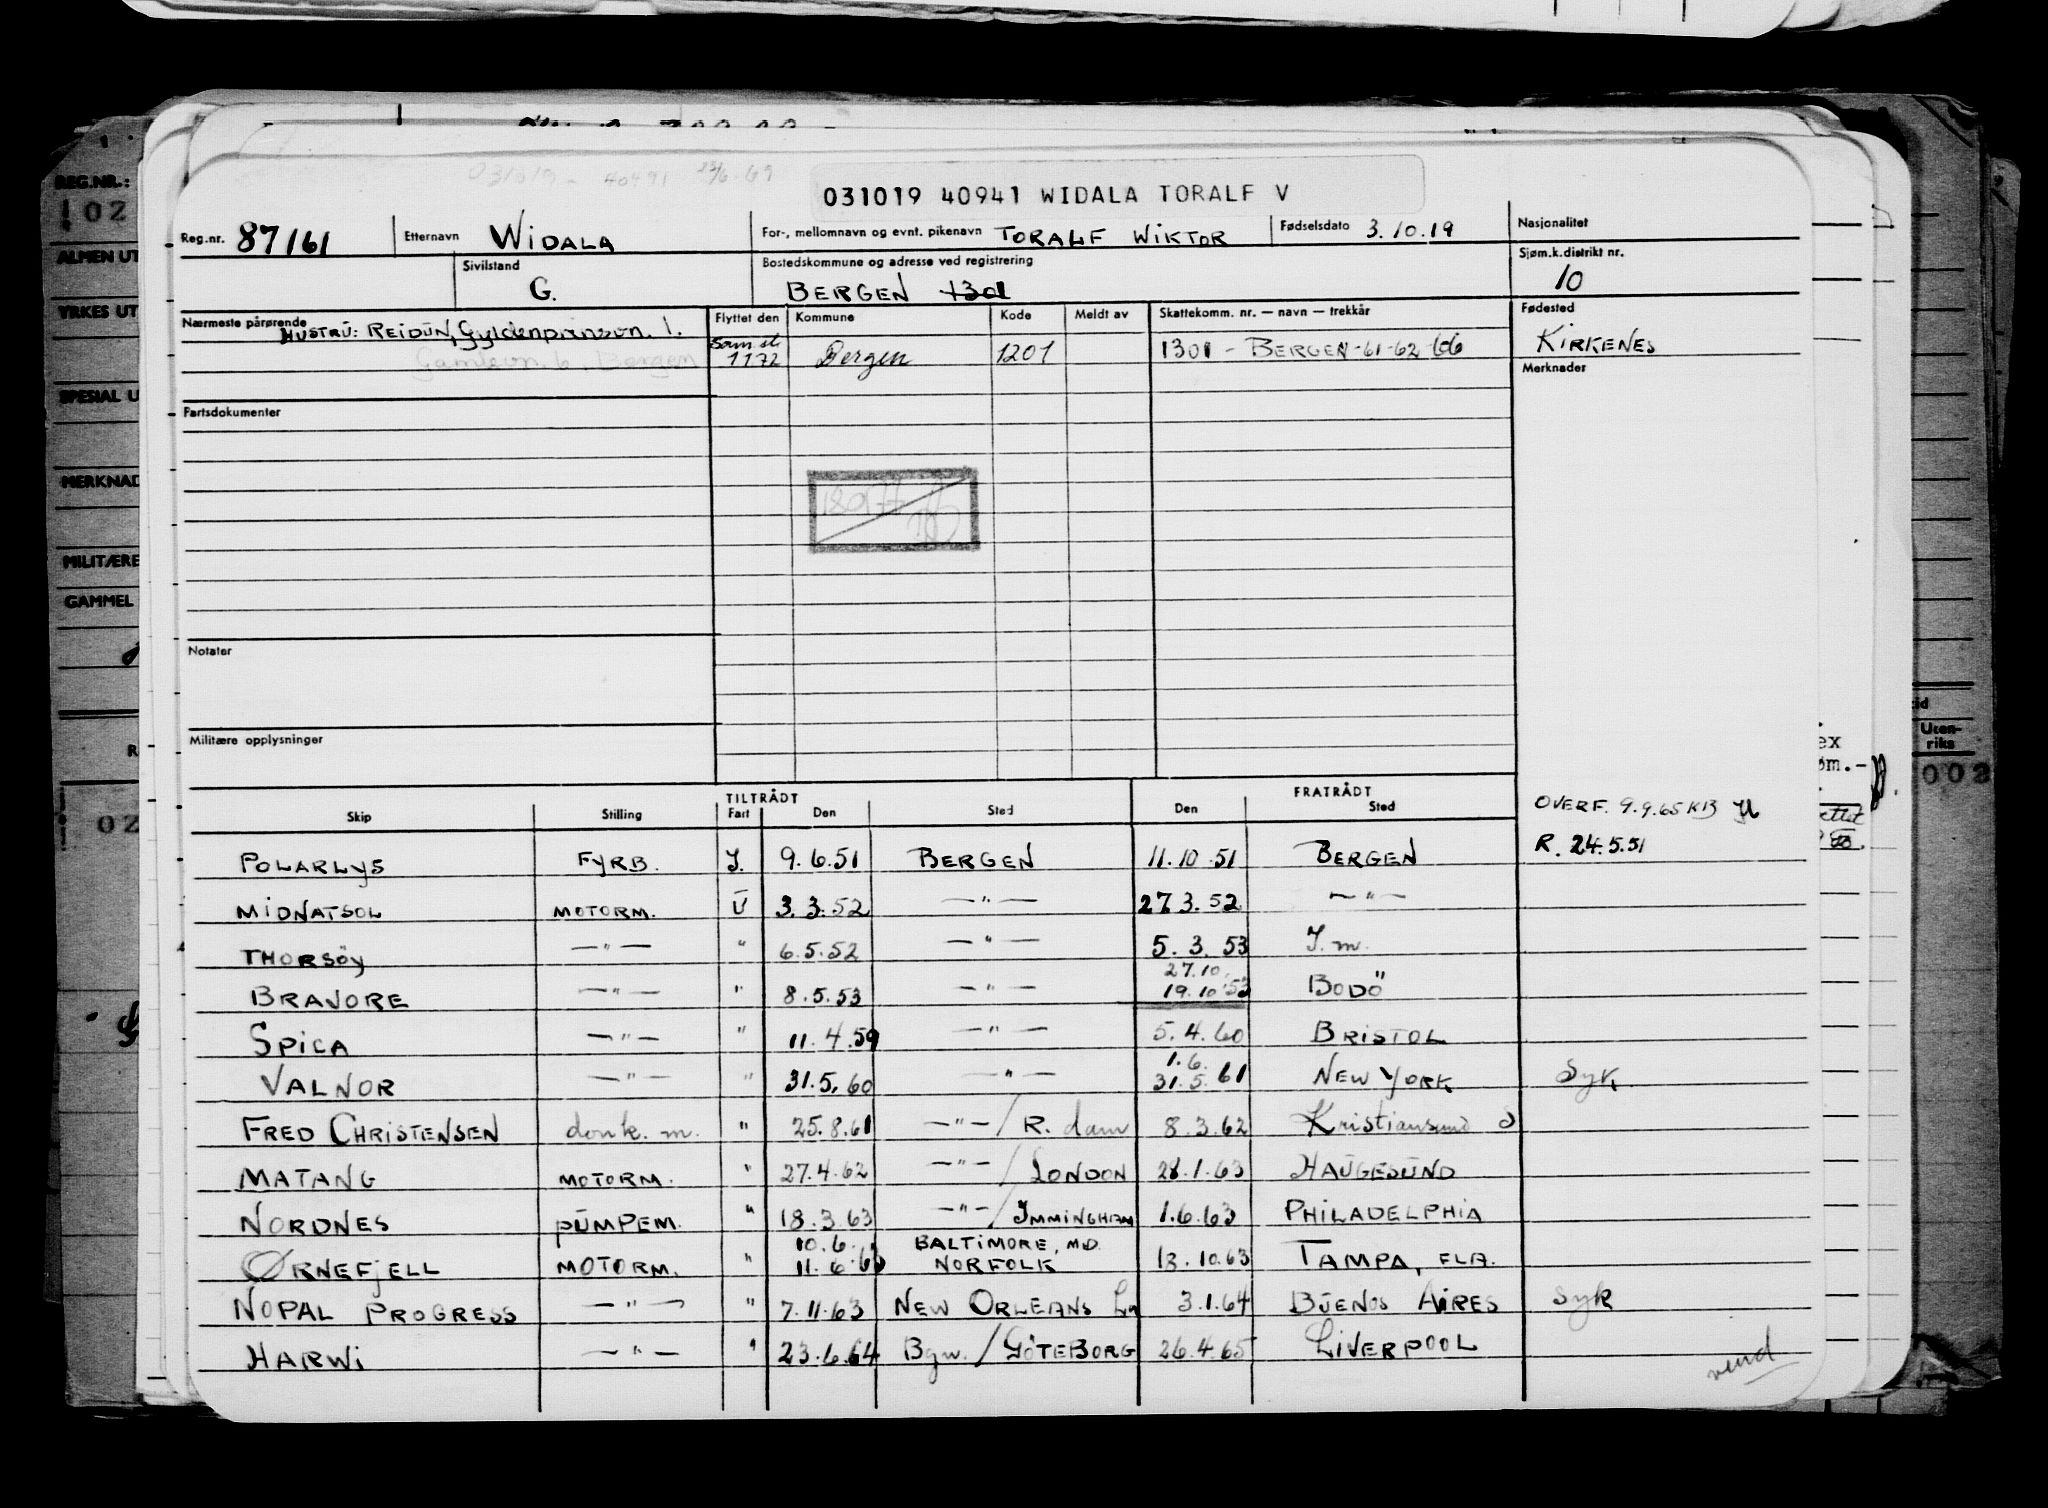 031019 - 40491 23/6-69
031019 40941 WIDALA TORALF V
Reg.nr. 87161 Etternavn WIDALA For-, mellomnavn og evnt. pikenavn TORALF WIKTOR Fødselsdato 3.10.19 Nasjonalitet
Sivilstand G. Bostedskommune og adresse ved registrering BERGEN 1301 Sjøm.k.distrikt nr. 10
Nærmeste pårørende HUSTRU: REIDUN, Gyldenprisvn. 1. Flyttet den Kommune Kode Meldt av Skattekomm. nr. — navn — trekkår Fødested
Gamlevn. 6, Bergen 1172 Bergen 1201 1301 - BERGEN-61-62-66 KIRKENES
Merknader
Fartsdokumenter
Notater
Militære opplysninger
TILTRÅDT FRATRÅDT
Skip Stilling Fart Den Sted Den Sted
OVERF. 9.9.65 KB
POLARLYS FYRB. J. 9.6.51 BERGEN 11.10.51 BERGEN R. 24.5.51
MIDNATSOL MOTORM. U 3.3.52 —"— 27.3.52 —"—
THORSÖY —"— " 6.5.52 —"— 5.3.53 J.m.
27.10.
BRAVORE —"— " 8.5.53 —"— 19.10.53 BODÖ
SPICA —"— " 11.4.59 —"— 5.4.60 BRISTOL
1.6.
VALNOR —"— " 31.5.60 —"— 31.5.61 NEW YORK Syk
FRED CHRISTENSEN donk. m. " 25.8.61 —"—/R.dam 8.3.62 Kristiansund S
MATANG MOTORM. " 27.4.62 —"—/LONDON 28.1.63 HAUGESUND
NORDNES PUMPEM. " 18.3.63 —"—/IMMINGHAM 1.6.63 PHILADELPHIA
10.6. BALTIMORE, MD.
ØRNEFJELL MOTORM. " 11.6.63 NORFOLK 13.10.63 TAMPA, FLA.
NOPAL PROGRESS —"— " 7.11.63 NEW ORLEANS La 3.1.64 BUENOS AIRES Syk
HARWI —"— " 23.6.64 Bgn./GÖTEBORG 26.4.65 LIVERPOOL
vend
REG.NR.:
102
ALMEN UT
YRKES UT
SPESIAL U
MERKNAD
MILITÆRE
GAMMEL
R
02
Uten-
riks
002